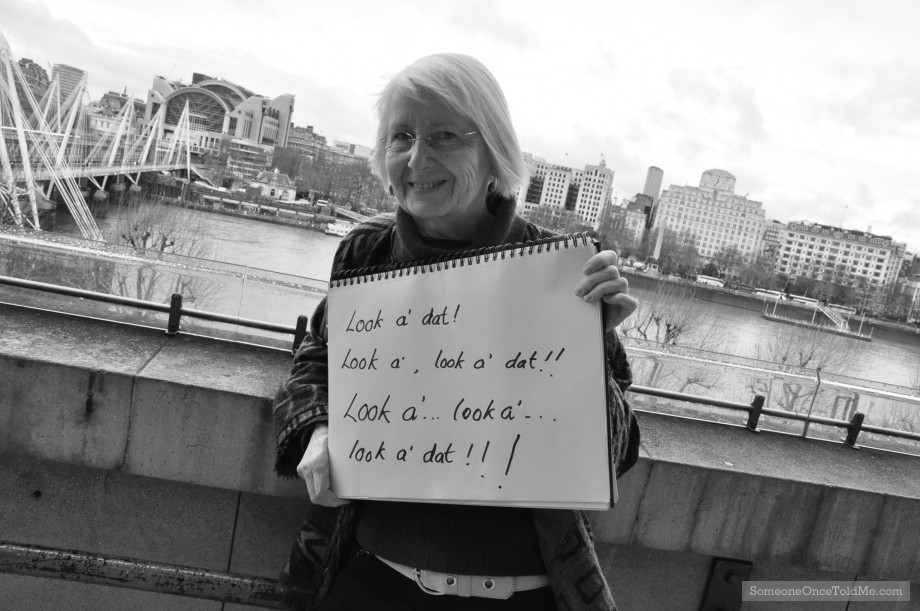 Look a' dat!
Look a', look a' dat!!
Look a'... look a'...
look a' dat!!!
SomeoneOnceToldMe.com